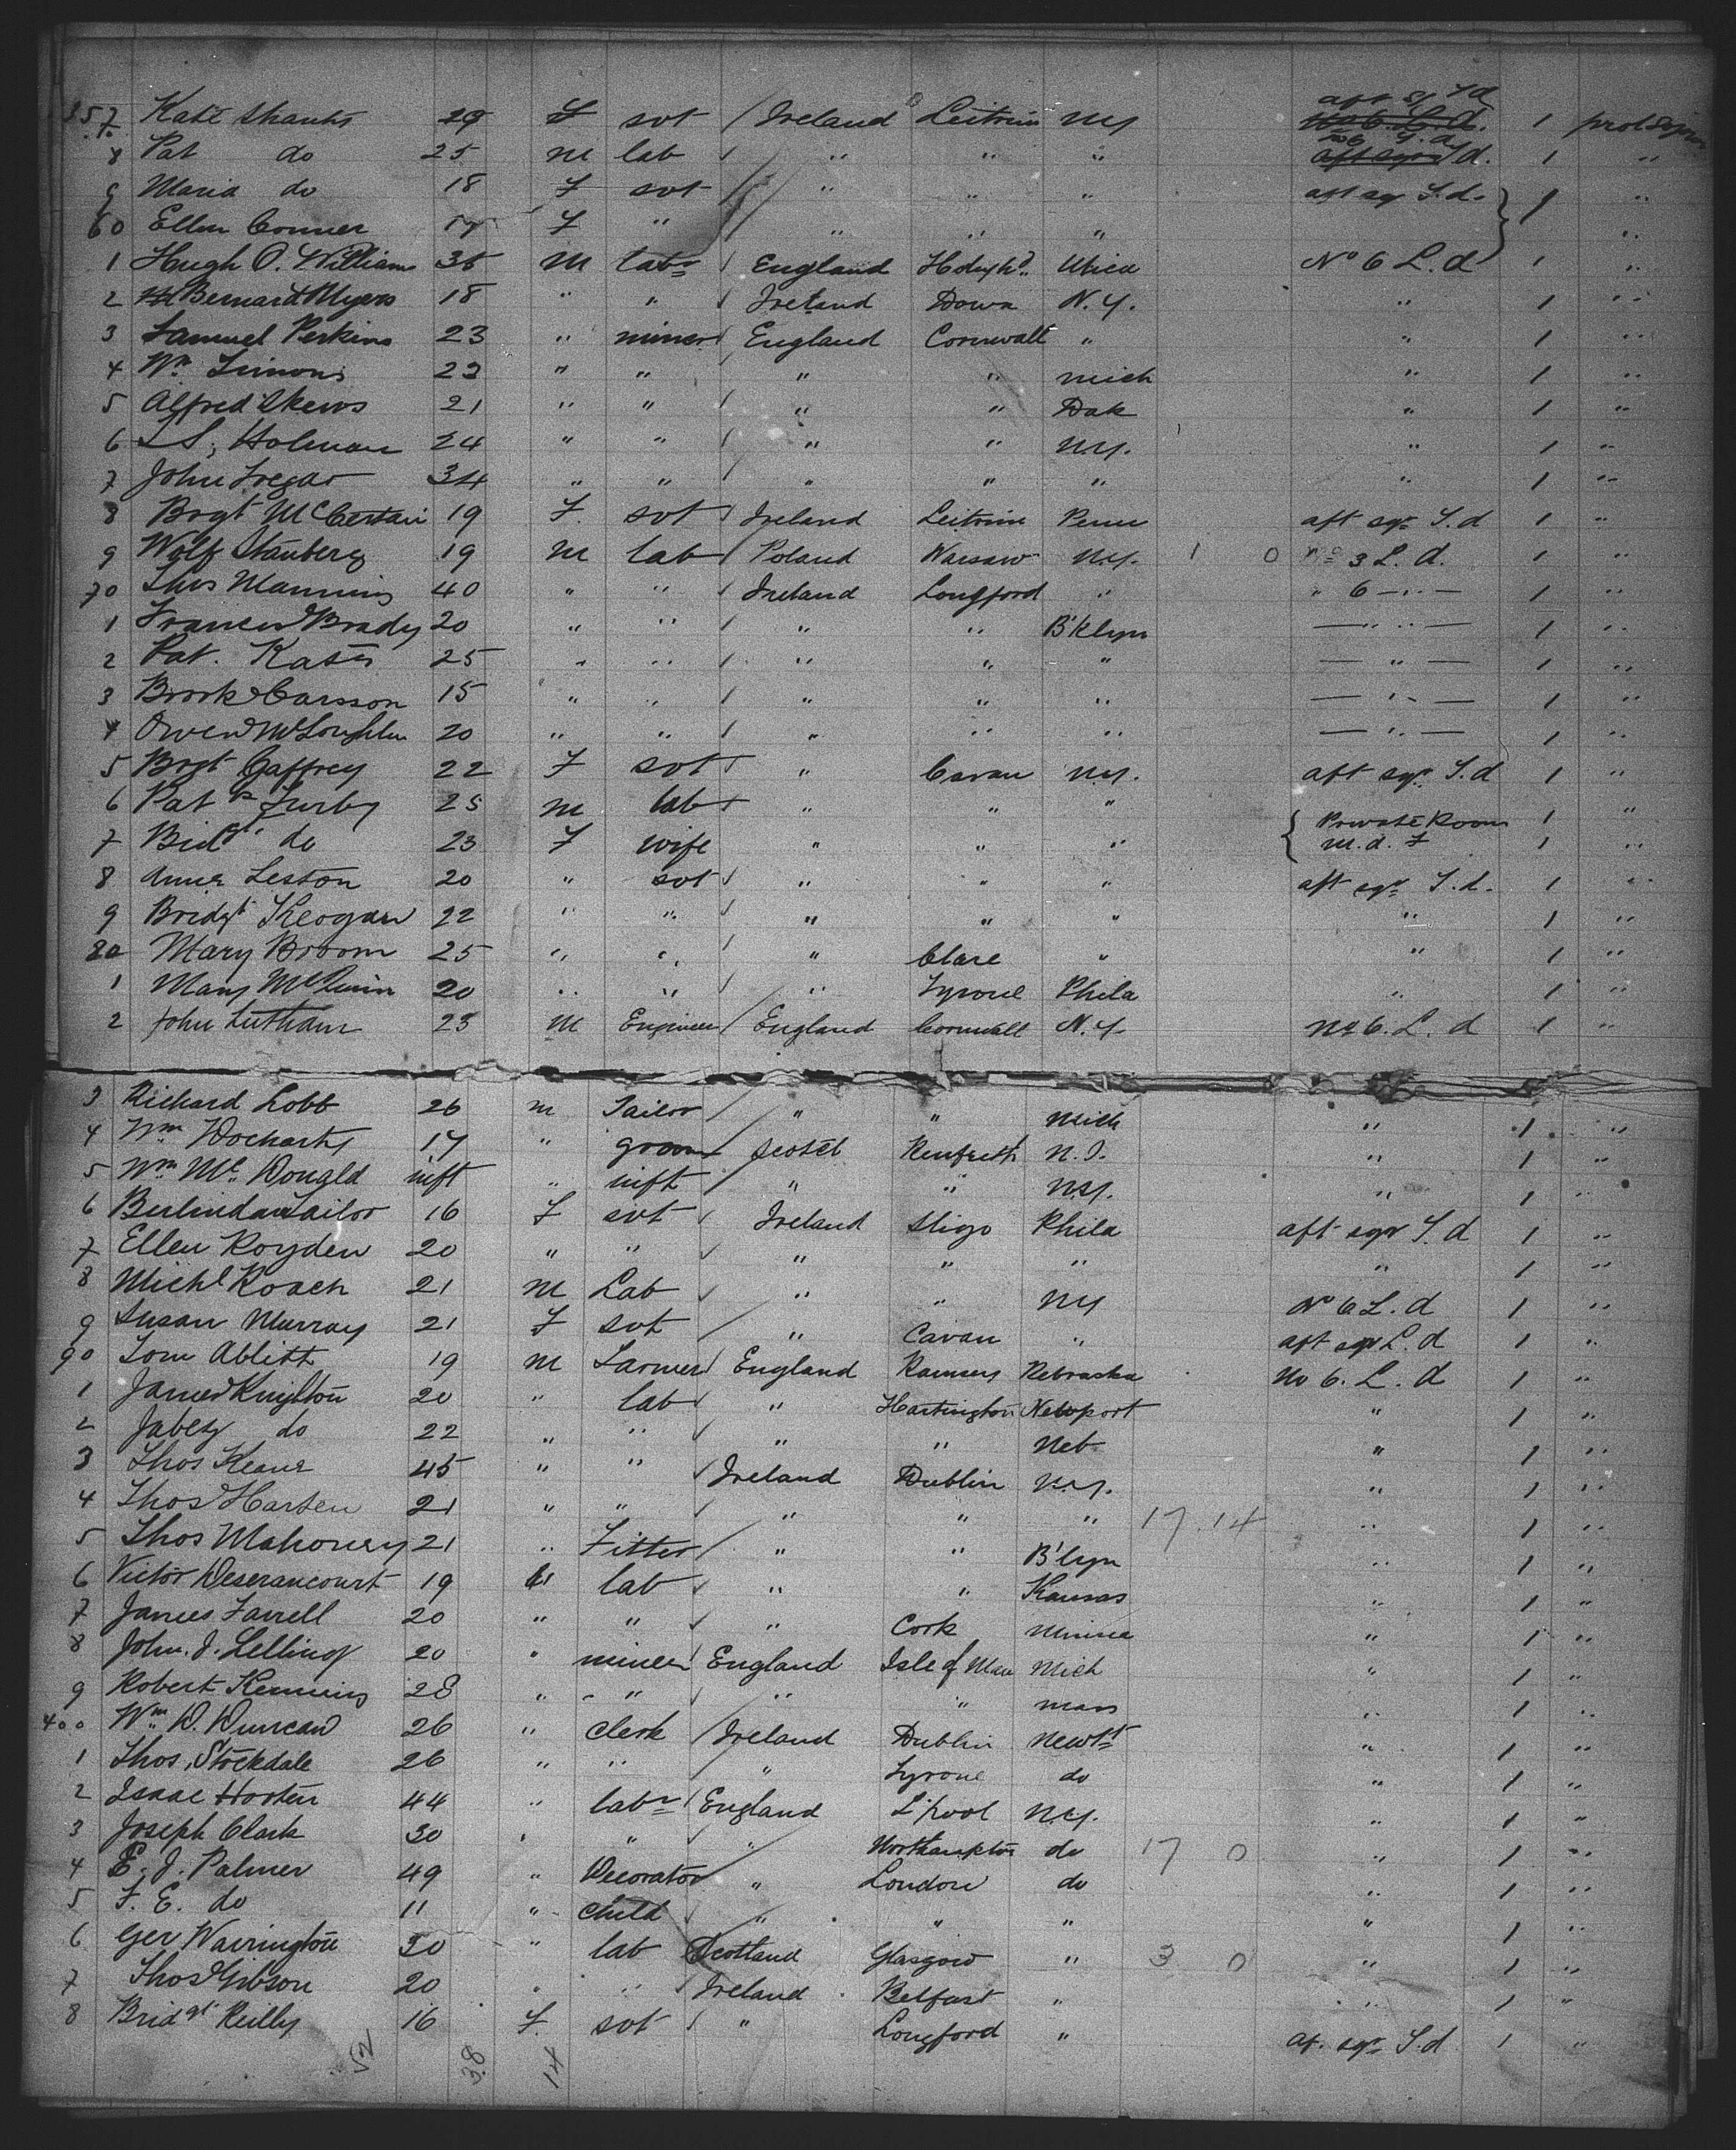 357 Kate Shanks 29 F svt / Ireland Leitrim NY aft sq S d 1 prot Sojrn
8 Pat do 25 M lab / " " " No 6 L. d. 1 "
9 Maria do 18 F svt / " " " aft sq S.d. 1 "
60 Ellen Conner 17 F " / " " " "
1 Hugh O. Williams 35 M labr / England Utica No 6 L.d 1 "
2 Bernard Myers 18 " " / Ireland Down N.Y. " 1 "
3 Samuel Perkins 23 " miner / England Cornwall " " 1 "
4 Wm Simons 23 " " / " " Mich " 1 "
5 Alfred Skews 21 " " / " " Dak " 1 "
6 Holman 24 " " / " " N.Y. " 1 "
7 John Tregar 34 " " / " " " " 1 "
8 Brgt 19 F. svt / Ireland Leitrim Penn aft sqr S.d 1 "
9 Wolf Stanberg 19 M lab / Poland Warsaw N.Y. 1 0 No 3 L. d. 1 "
70 Thos Manning 40 " " / Ireland Longford " " 6 — " — 1 "
1 Francis Brady 20 " " / " " B'klyn — " " — 1 "
2 Pat. 25 " " / " " " — " — 1 "
3 Carsson 15 " " / " " " — " — 1 "
4 Owen McLoughlin 20 " " / " " " — " — 1 "
5 Brgt Gaffrey 22 F svt / " Cavan N.Y. aft sqr S.d 1 "
6 Patk 25 M lab / " " " { Private Room 1 "
7 Bridgt do 23 F wife " " " M.d. F 1 "
8 Anne Leston 20 " svt / " " " aft sqr S.d. 1 "
9 Bridgt Keogan 22 " " / " " " " 1 "
80 Mary Broom 25 " " / " Clare " " 1 "
1 Mary McQuinn 20 " " / " Tyrone Phila " 1 "
2 John 23 M Engineer / England Cornwall N.Y. No 6. L. d 1 "
3 Richard Lobb 26 M Tailor / " " Mich " 1 "
4 Wm Docharty 17 " groom / Scotd N.J. " 1 "
5 Wm McDonald inft " inft / " " N.Y. " 1 "
6 Berlinda Tailor 16 F svt / Ireland Sligo Phila aft sqr S.d 1 "
7 Ellen Royden 20 " " / " " " " 1 "
8 Michl Roach 21 M Lab / " " NY No 6 L. d 1 "
9 Susan Murray 21 F svt / " Cavan " aft sqr L. d 1 "
90 Tom Ablitt 19 M Farmer / England Ramsey Nebraska No 6. L. d 1 "
1 James Knighton 20 " lab / " Hartington Newport " 1 "
2 Jabetz do 22 " " / " " Neb " 1 "
3 Thos Keane 45 " " / Ireland Dublin N.Y. " 1 "
4 Thos Harten 21 " " / " " " 17 14 " 1 "
5 Thos Mahoney 21 " Fitter / " " B'lyn " 1 "
6 Victor Deserancourt 19 lab / " " Kansas " 1 "
7 James Farrell 20 " " / " Cork Minna " 1 "
8 John. J. 20 " miner / England Isle of Man Mich " 1 "
9 Robert 28 " " " " Mass " 1 "
400 Wm D. Duncan 26 " Clerk / Ireland Dublin " 1 "
1 Thos, Stockdale 26 " " / " Tyrone do " 1 "
2 Isaac Horten 44 " labr / England L'pool N.Y. " 1 "
3 Joseph Clark 30 " " / " Northampton do 17 0 " 1 "
4 E. J. Palmer 49 " Decorator / " London do " 1 "
5 F. E. do 11 " Child / " " " " 1 "
6 Ger Warrington 30 " lab Scotland Glasgow " 3 0 " 1 "
7 Thos Gibson 20 " " Ireland Belfast " " 1 "
8 Bridgt Reilly 16 F. svt / " Longford " af. sqr S.d 1 "
52 38 14